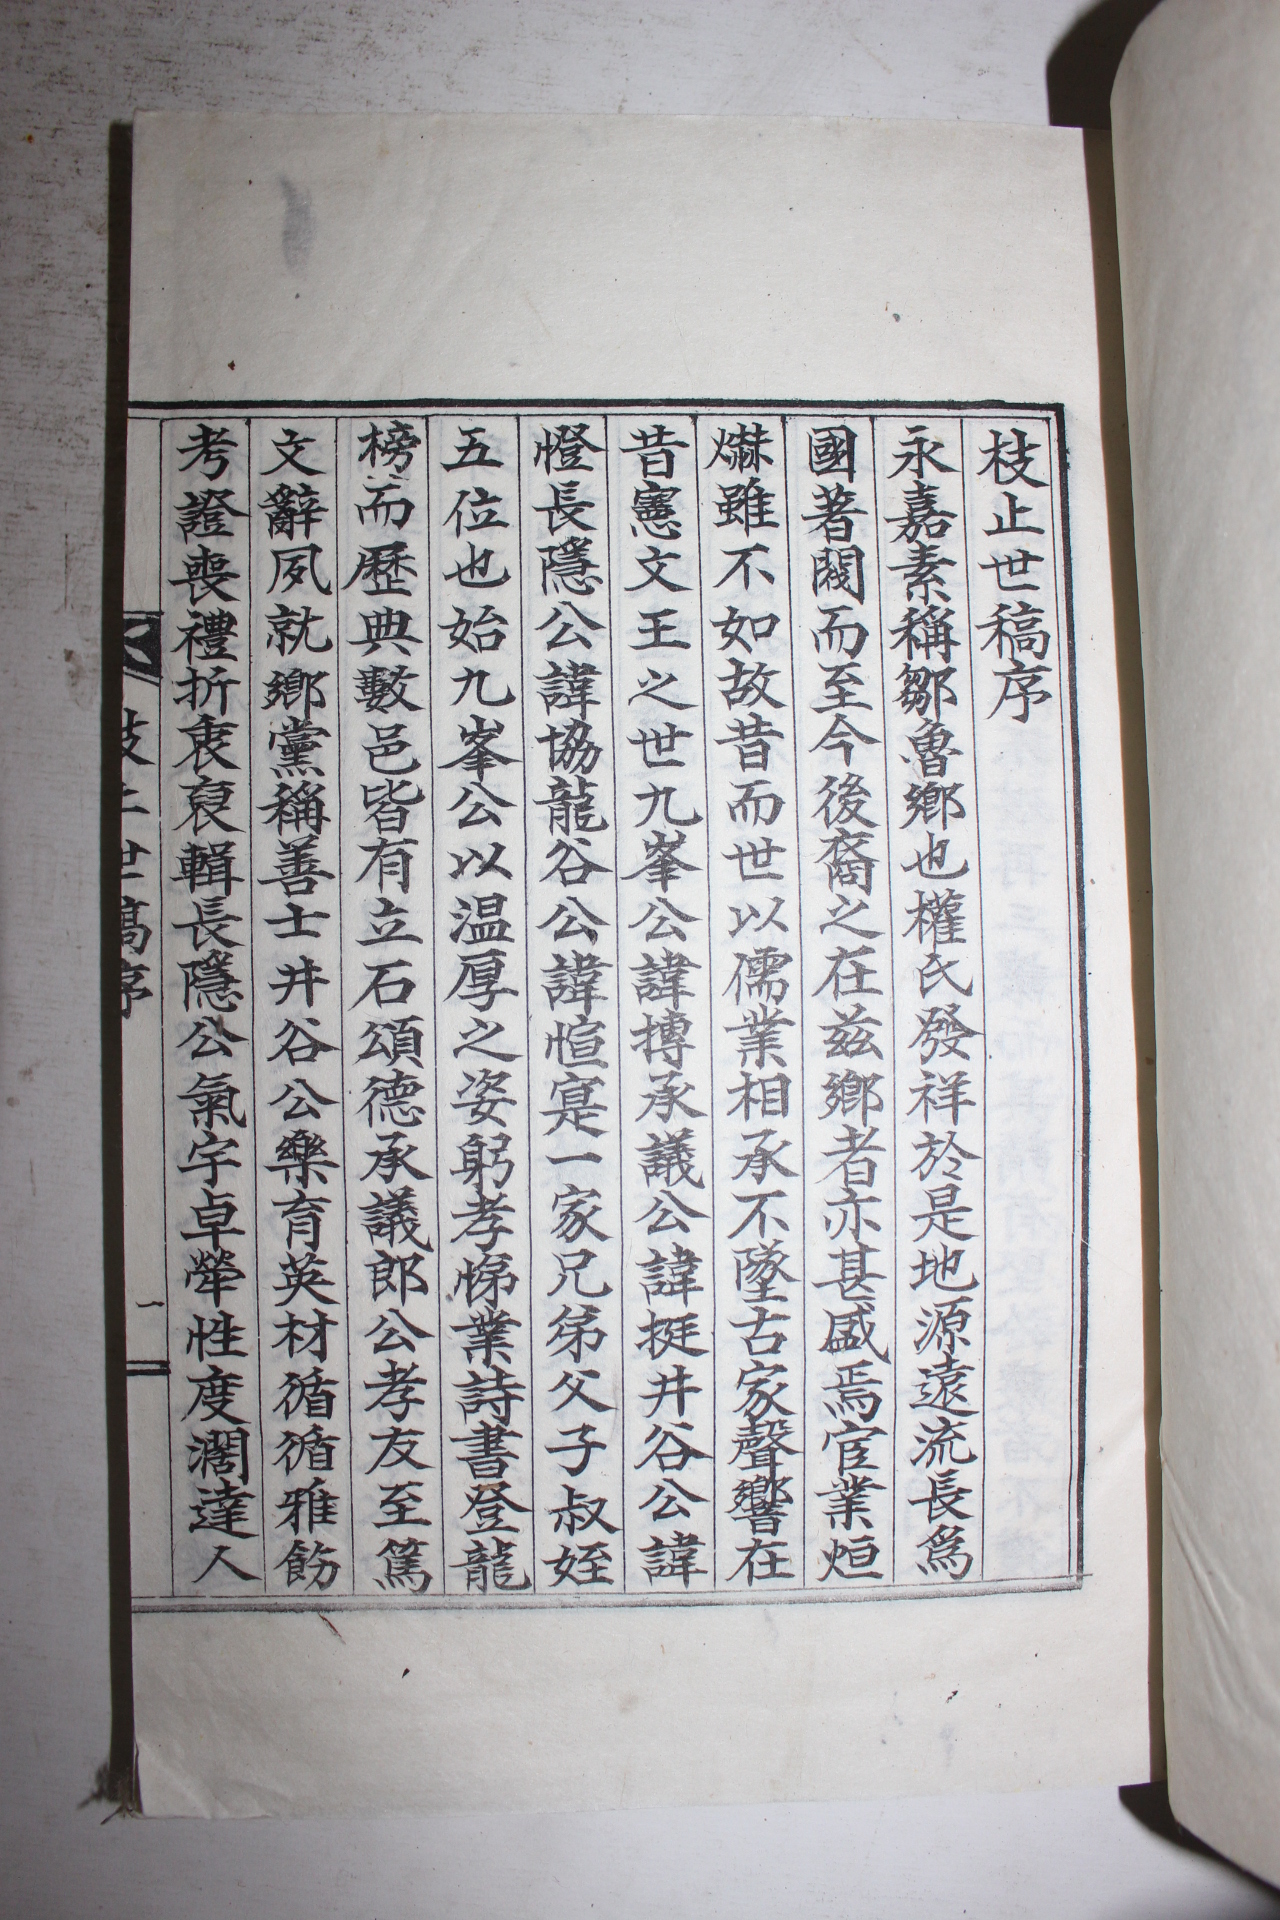 枝止世稿序
永嘉素稱鄒魯鄉也權氏發祥於是地源遠流長爲
國著閥而至今後裔之在茲鄉者亦甚盛焉宦業烜
爀雖不如故昔而世以儒業相承不墜古家聲響在
昔憲文王之世九峯公諱摶承議公諱挺井谷公諱
憕長隱公諱協龍谷公諱愃寔一家兄弟父子叔姪
五位也始九峯公以温厚之姿躬孝悌業詩書登龍
榜而歷典數邑皆有立石頌德承議郎公孝友至篤
文辭夙就鄉黨稱善士井谷公樂育英材循循雅飭
考證喪禮折衷裒輯長隱公氣宇卓犖性度濶達人
枝止世稿序
一